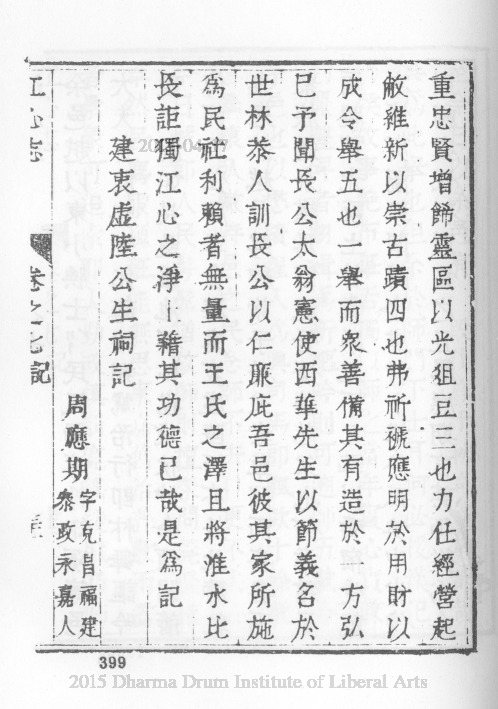 重忠賢增飾靈區以光俎豆三也力任經營起
敝維新以崇古蹟四也弗祈禠應明於用財以
成令舉五也一舉而衆善備其有造於 方弘
已予聞長公太翁憲使西華先生以節義名於
世林恭人訓長公以仁廉庇吾邑彼其家所施
爲民社利賴者無量而王氏之澤且將淮水比
長詎獨江心之淨土藉其功德已哉是爲記
建衷虛陸公生祠記
周應期 字克昌福建
叅政永嘉人
江心志 卷之七記
399
2015 Dharma Drum Institute of Liberal Arts